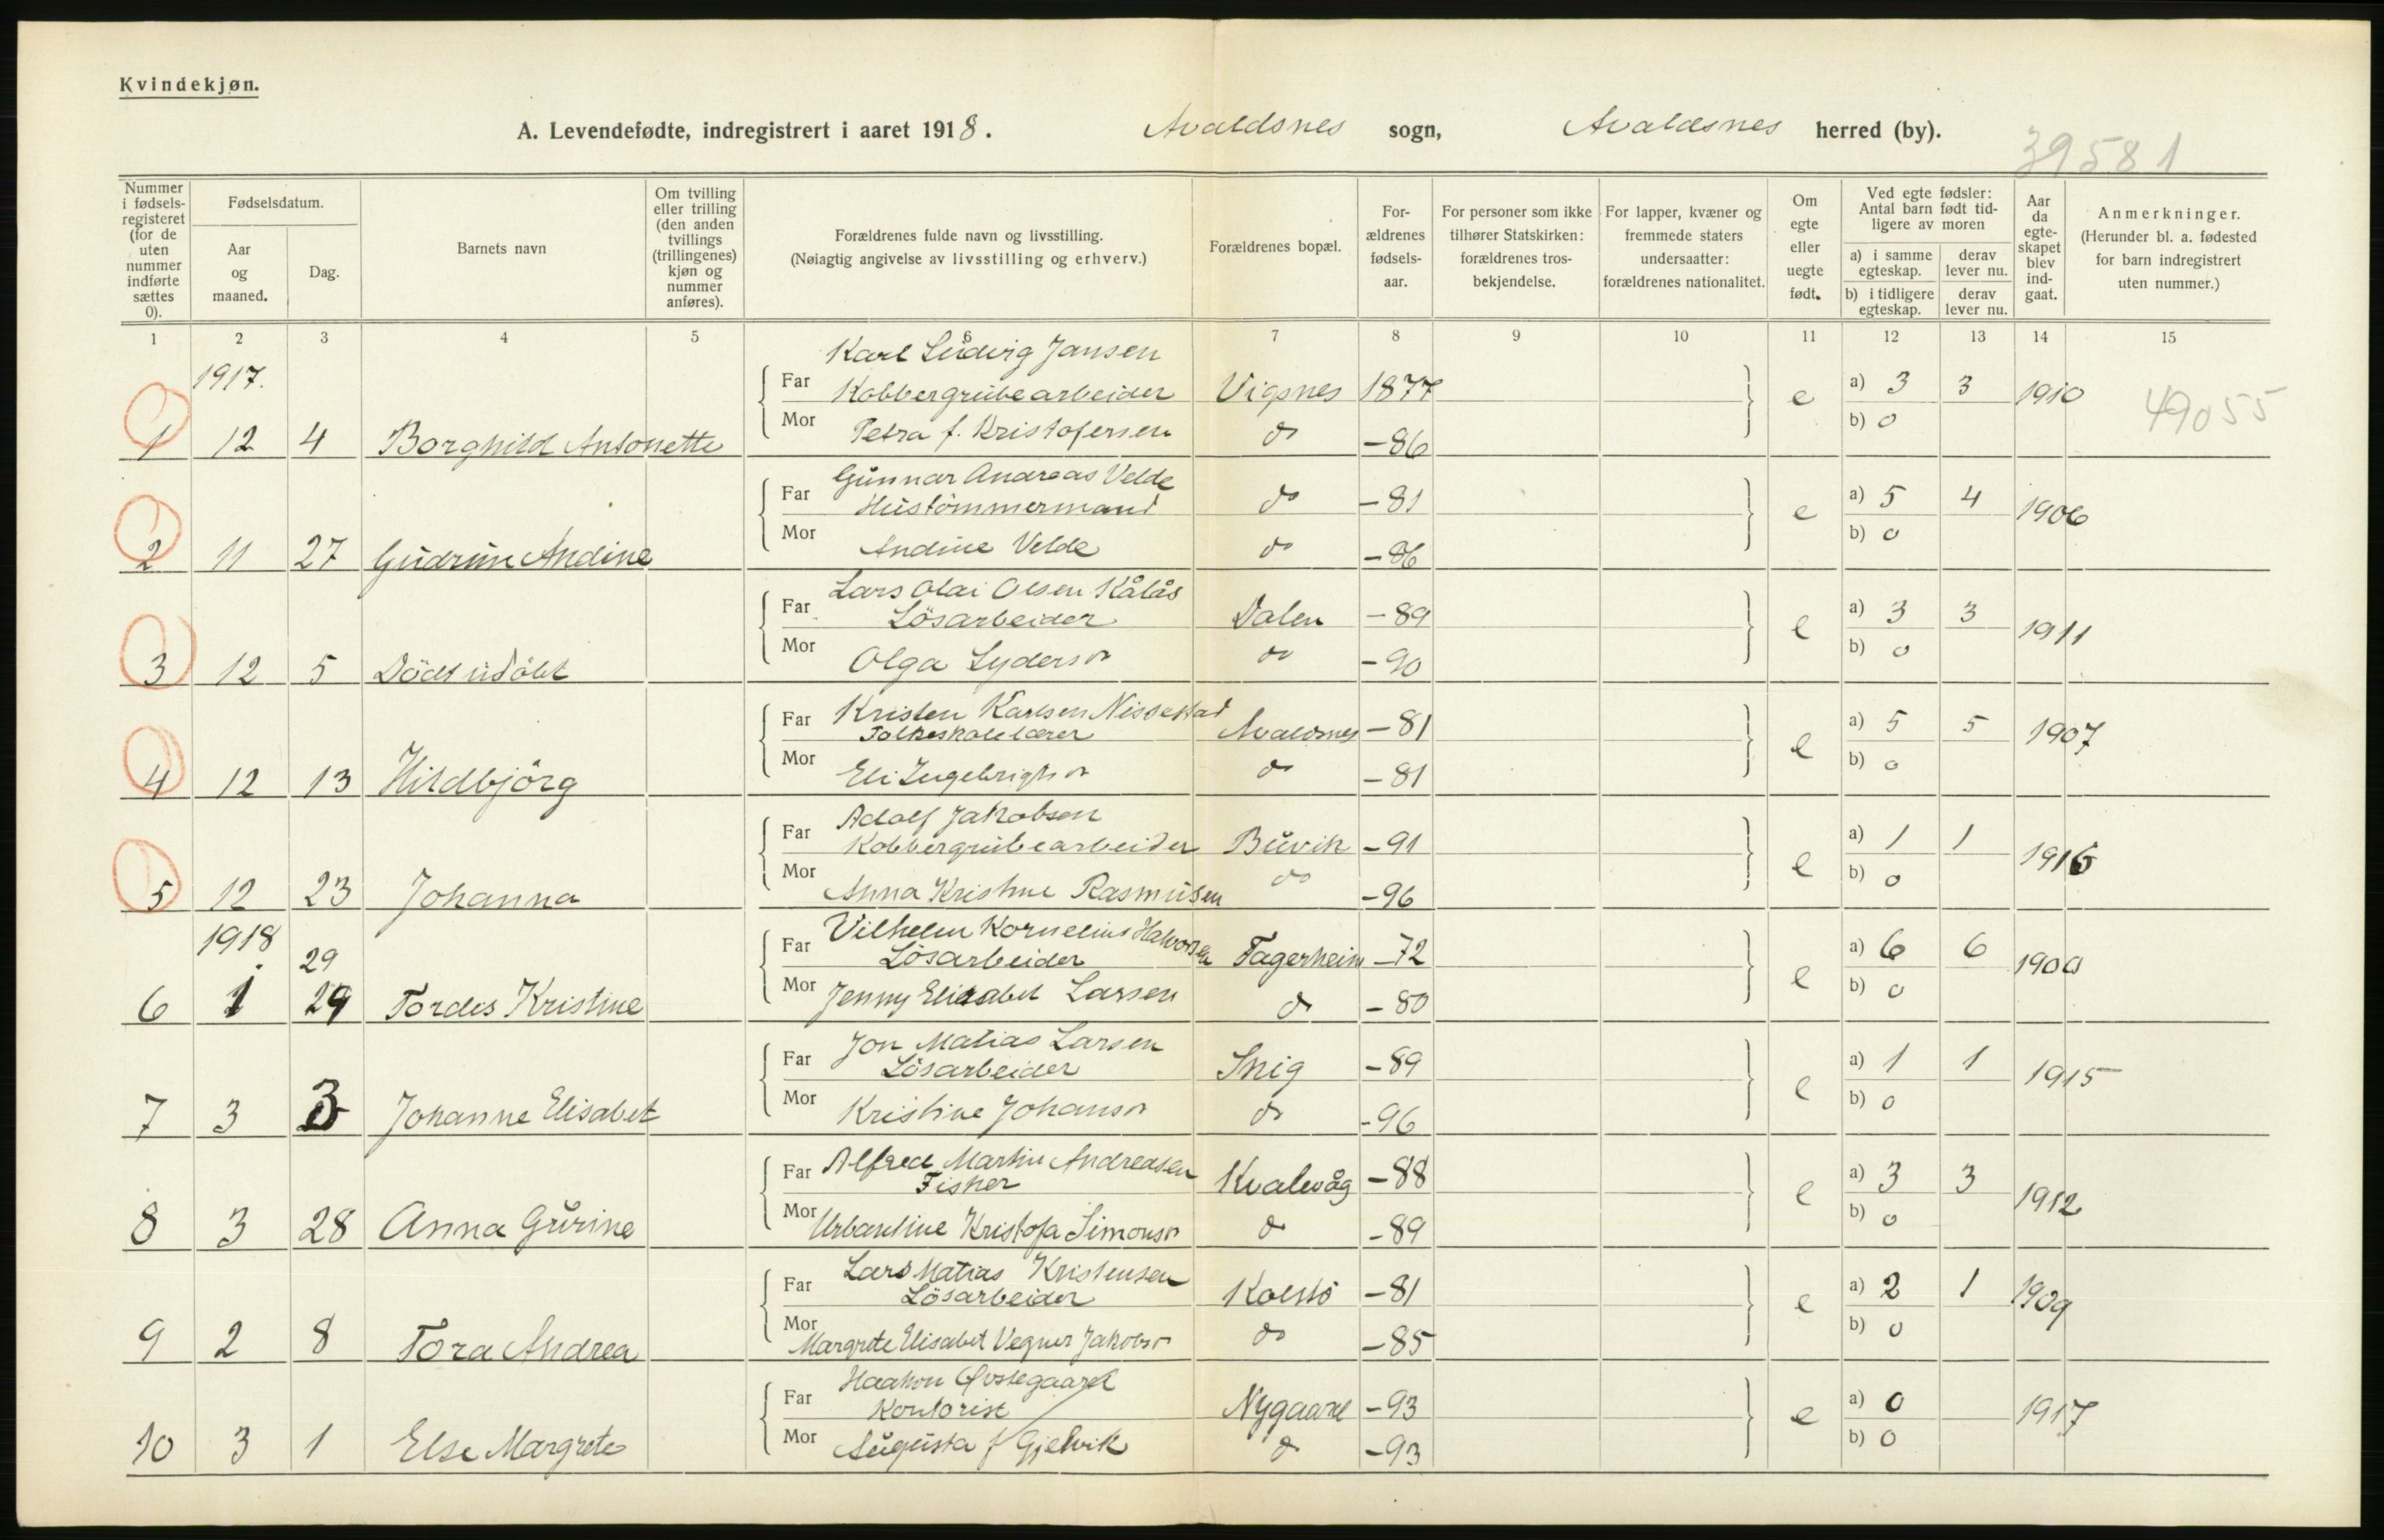 Kvindekjøn.
A. Levendefødte, indregistrert i aaret 1918. Avaldsnes sogn, Avaldsnes herred (by).
39581
Nummer i fødsels-registeret (for de uten nummer indførte sættes 0).
Fødselsdatum.
Aar og maaned.
Dag.
Barnets navn
Om tvilling eller trilling (den anden tvillings (trillingenes) kjøn og nummer anføres).
Forældrenes fulde navn og livsstilling.
(Nøiagtig angivelse av livsstilling og erhverv.)
Forældrenes bopæl.
For-ældrenes fødsels-aar.
For personer som ikke tilhører Statskirken: forældrenes tros-bekjendelse.
For lapper, kvæner og fremmede staters undersaatter: forældrenes nationalitet.
Om egte eller uegte født.
Ved egte fødsler: Antal barn født tid-ligere av moren
a) i samme egteskap.
derav lever nu.
b) i tidligere egteskap.
derav lever nu.
Aar da egte-skapet blev ind-gaat.
Anmerkninger.
(Herunder bl. a. fødested for barn indregistrert uten nummer.)
1 2 3 4 5 6 7 8 9 10 11 12 13 14 15
1917.
Karl Ludvig Jansen
Far Kobbergrubearbeider Vigsnes 1877 e a) 3 3 1910 49055
1 12 4 Borghild Antonette Mor Petra f. Kristofersen do -86 b) 0
Gunnar Andreas Velde
Far Hustømmermand do -81 e a) 5 4 1906
2 11 27 Gudrun Andine Mor Andine Velde do -86 b) 0
Lars Olai Olsen Kålås
Far Lösarbeider Dalen -89 e a) 3 3 1911
3 12 5 Död udöbt Mor Olga Lydersdr do -90 b) 0
Kristen Karlsen Nissestad
Far Folkeskolelærer Avaldsnes -81 e a) 5 5 1907
4 12 13 Hildbjörg Mor Eli Ingebrigtsdr do -81 b) 0
Adolf Jakobsen
Far Kobbergrubearbeider Buvik -91 e a) 1 1 1916
5 12 23 Johanna Mor Anna Kristine Rasmusen do -96 b) 0
1918 29
Vilhelm Kornelius Halvorsen
Far Lösarbeider Fagerheim -72 e a) 6 6 1900
6 1 29 Tordis Kristine Mor Jenny Elisabet Larsen do -80 b) 0
Jon Matias Larsen
Far Lösarbeider Snig -89 e a) 1 1 1915
7 3 3 Johanne Elisabet Mor Kristine Johansdr do -96 b) 0
Alfred Martin Andreasen
Far Fisker Kvalevåg -88 e a) 3 3 1912
8 3 28 Anna Gurine Mor Urbantine Kristofa Simonsdr do -89 b) 0
Lars Matias Kristensen
Far Lösarbeider Kolstö -81 e a) 2 1 1909
9 2 8 Tora Andrea Mor Margrete Elisabet Vegner Jakobsdr do -85 b) 0
Haakon Østegaard
Far Kontorist Nygaard -93 e a) 0 1917
10 3 1 Else Margrete Mor Augusta f Gjelvik do -93 b) 0